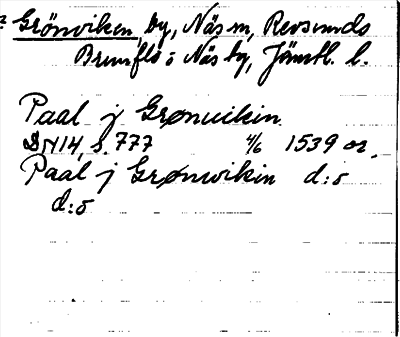 Grönviken, by, Näs sn, Revsunds
Brunflo o Näs tg, Jämtl. l.
Paal j Grønvikin
DN14, s. 777 4/6 1539 or.
Paal j Grønwikin d:o
d:o